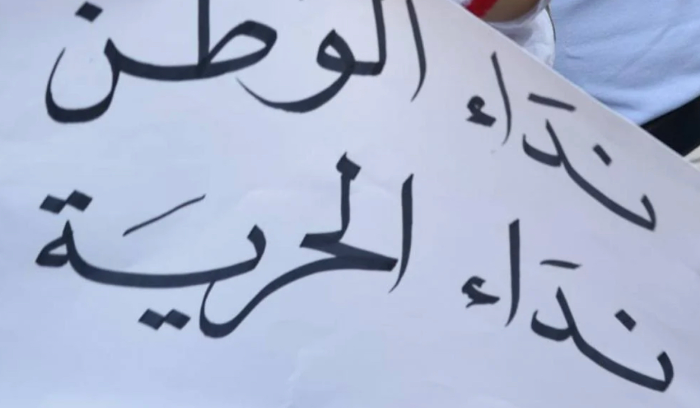 نَداء الوطن
نَداء الحريَة